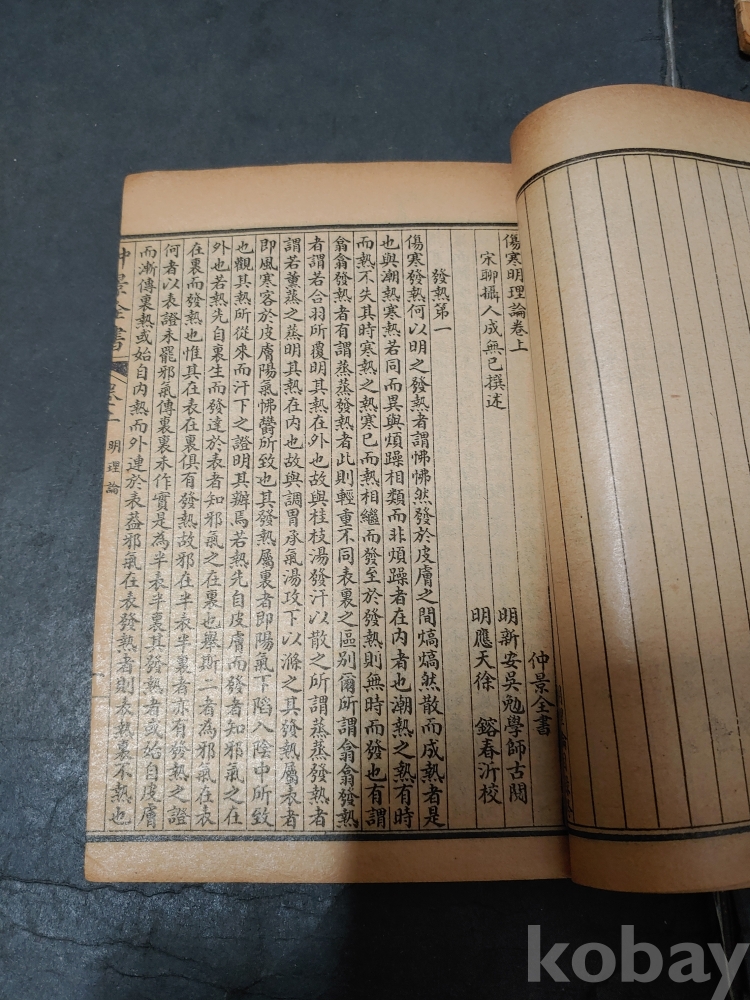 傷寒明理論卷上
仲景全書
宋聊攝人成無已撰述
明新安吳勉學師古閱
明應天徐鎔春沂校
發熱第一
傷寒發熱何以明之發熱者謂怫怫然發於皮膚之間熇熇然散而成熱者是
也與潮熱寒熱若同而異與煩躁相類而非煩躁者在內者也潮熱之熱有時
而熱不失其時寒熱之熱寒已而熱相繼而發至於發熱則無時而發也有謂
翕翕發熱者有謂蒸蒸發熱者此則輕重不同表裏之區別爾所謂翕翕發熱
者謂若合羽所覆明其熱在外也故與桂枝湯發汗以散之所謂蒸蒸發熱者
謂若薰蒸之蒸明其熱在內也故與調胃承氣湯攻下以滌之其發熱屬表者
即風寒客於皮膚陽氣怫鬱所致也其發熱屬裏者即陽氣下陷入陰中所致
也觀其熱所從來而汗下之證明其辨焉若熱先自皮膚而發者知邪氣之在
外也若熱先自裏生而發達於表者知邪氣之在裏也舉斯二者為邪氣在表
在裏而發熱也惟其在表在裏俱有發熱故邪在半表半裏者亦有發熱之證
何者以表證未罷邪氣傳裏裏未作實是為半表半裏其發熱者或始自皮膚
而漸傳裏熱或始自內熱而外連於表葢邪氣在表發熱者則表熱裏不熱也
仲景全書
明理論
kobay